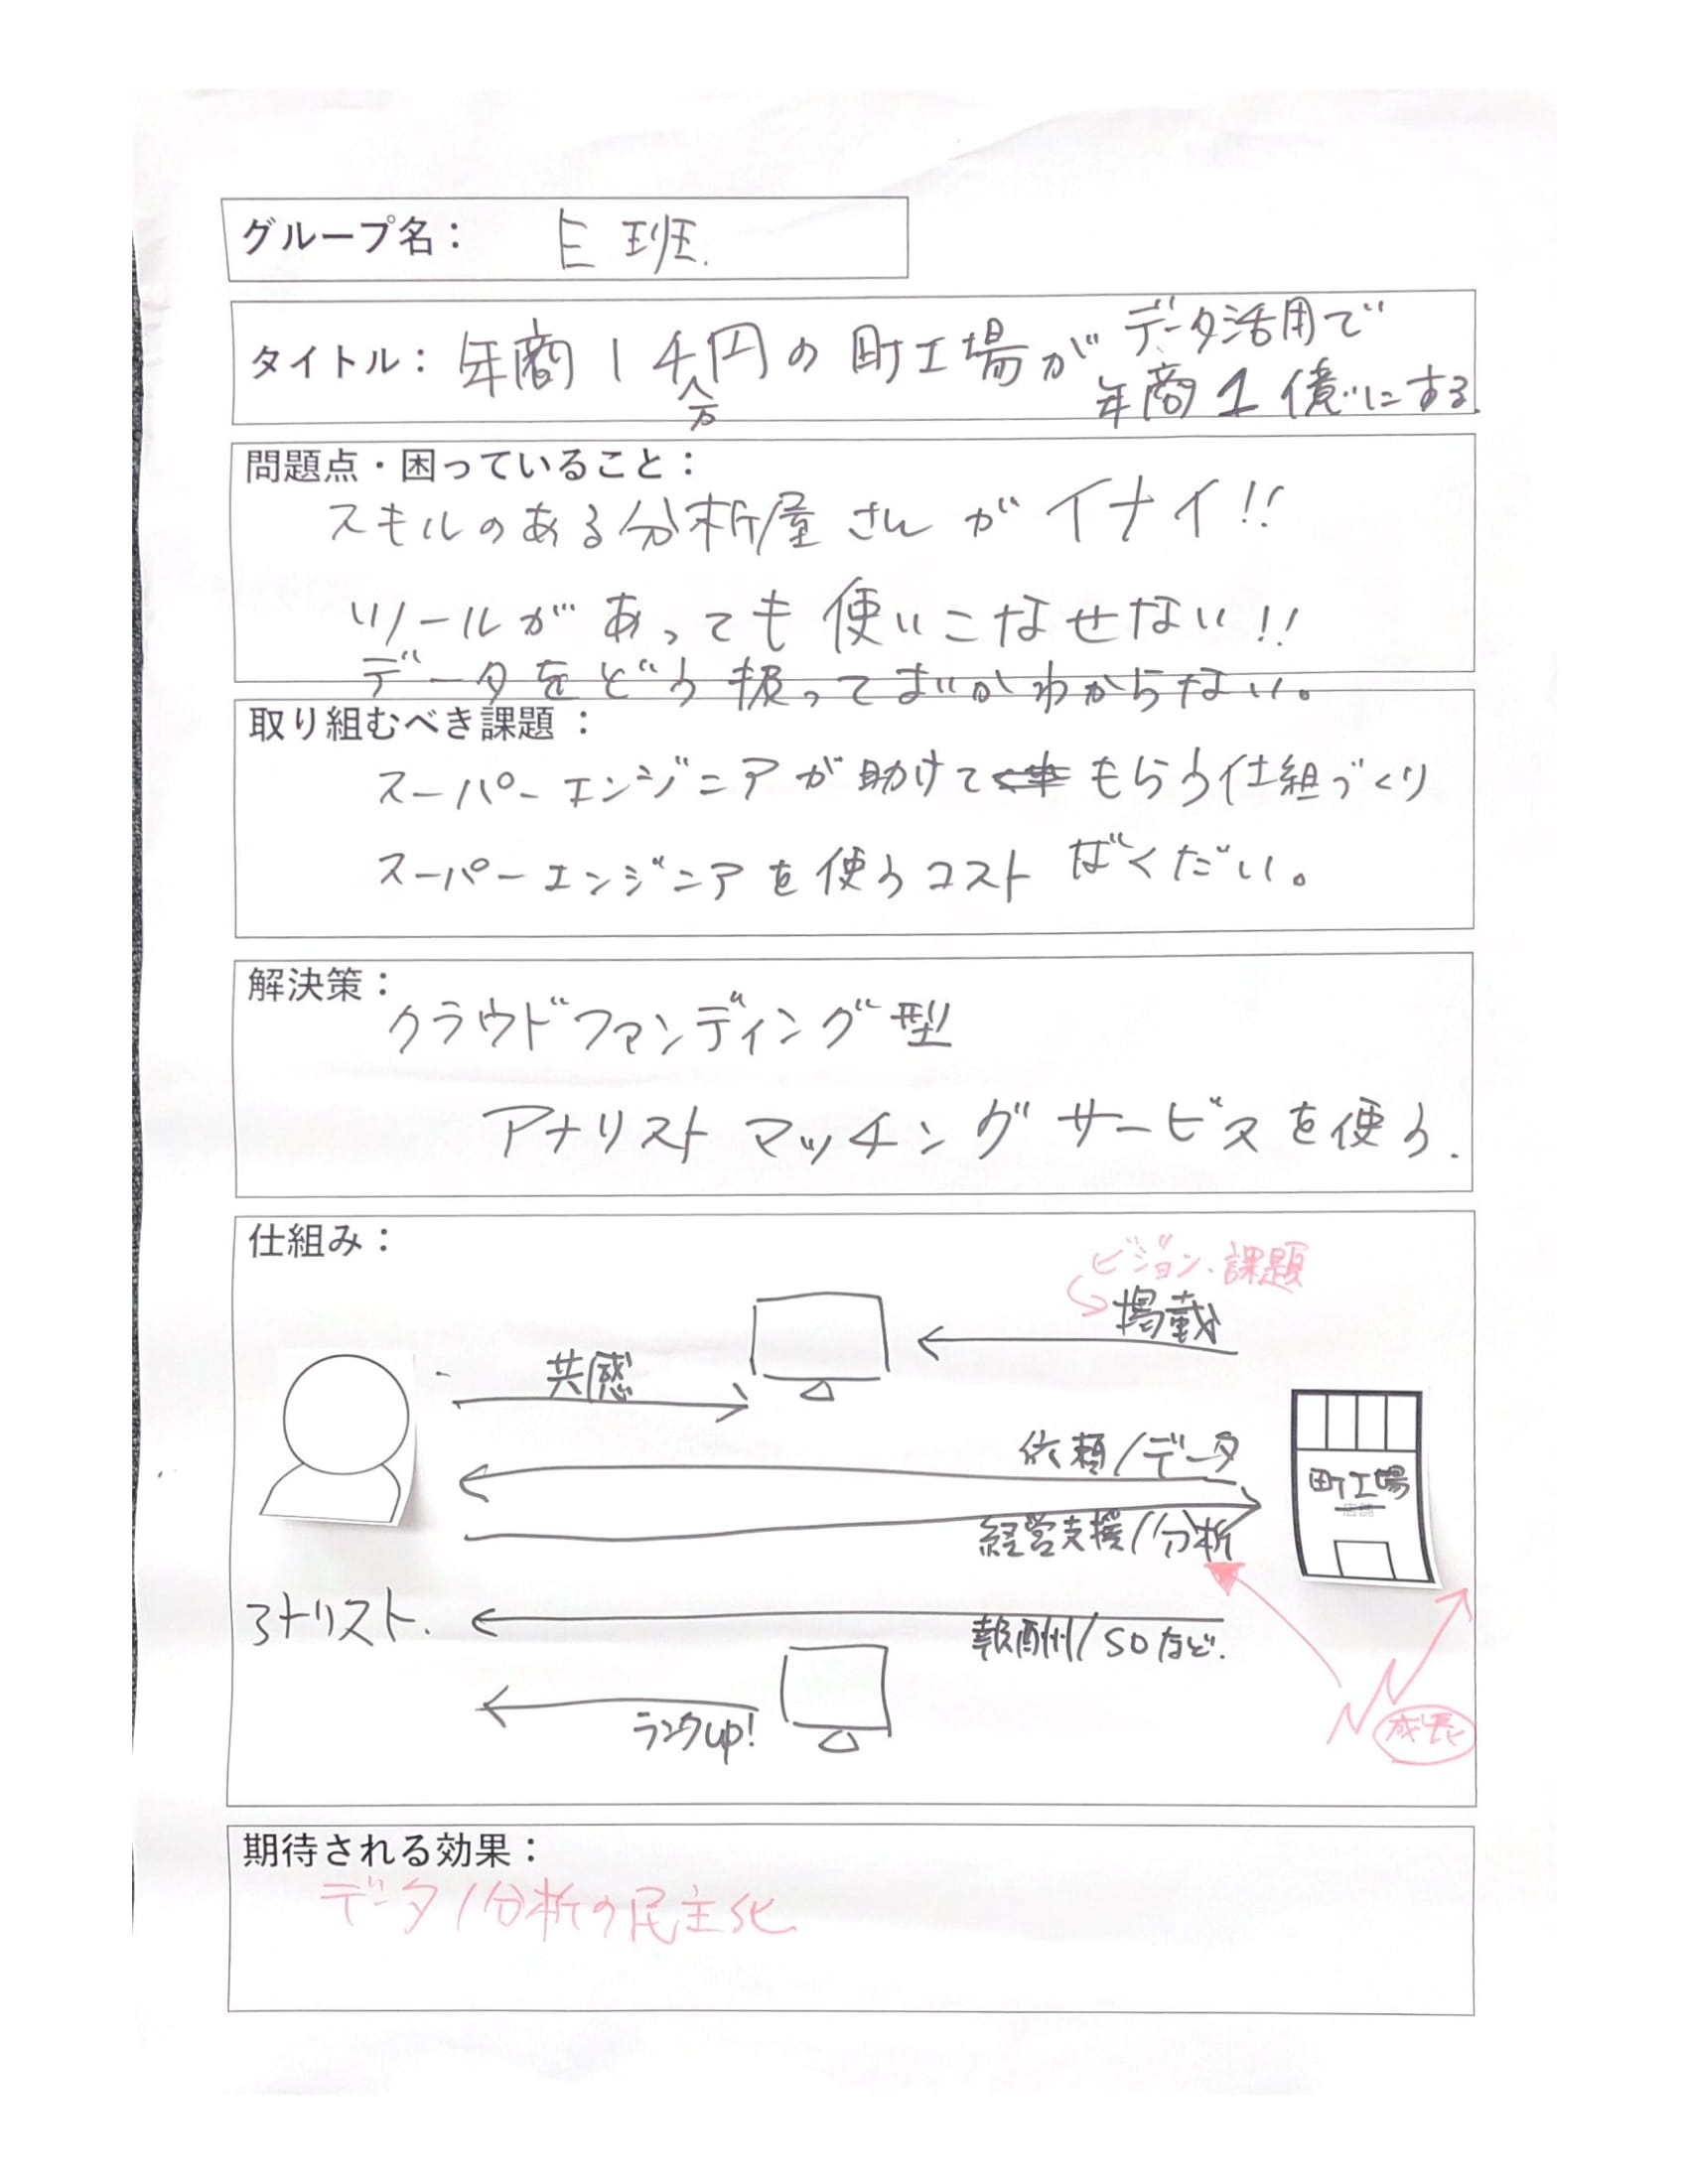 グループ名： E 班.
タイトル： 年商 1千万円の町工場が データ活用で
年商 1 億にする.
問題点・困っていること：
スキルのある分析屋さん がイナイ!!
ツールがあっても使いこなせない!!
データをどう扱って よいかわからない。
取り組むべき課題：
スーパーエンジニアが助けて もらう仕組づくり
スーパーエンジニアを使うコスト ばくだい。
解決策：
クラウドファンディング型
アナリストマッチングサービスを使う.
仕組み：
ビジョン・課題
掲載
共感
依頼/データ
町工場
店舗
経営支援/分析
アナリスト.
報酬/SOなど.
ランクup!
成長
期待される効果：
データ/分析の民主化